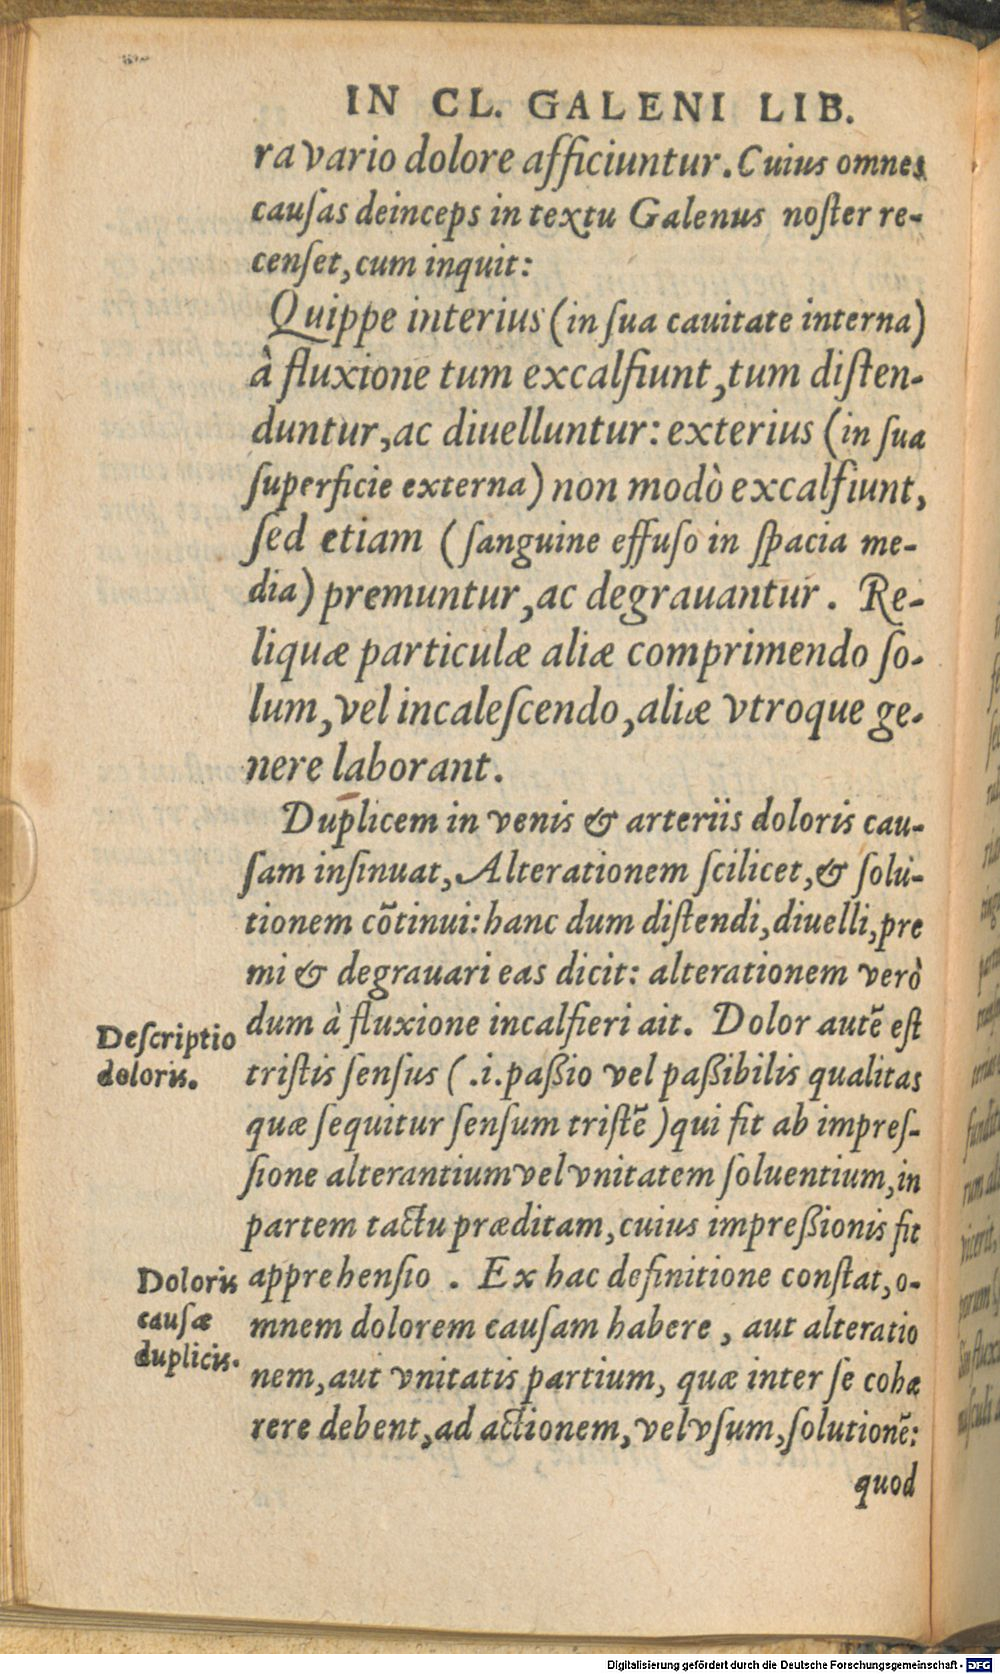 IN CL. GALENI LIB.
ra vario dolore afficiuntur. Cuius omnes
cauſas deinceps in textu Galenus noſter re-
cenſet, cum inquit:
Quippe interius (in ſua cauitate interna)
à fluxione tum excalfiunt, tum diſten-
duntur, ac diuelluntur: exterius (in ſua
ſuperficie externa) non modò excalfiunt,
ſed etiam (ſanguine effuſo in ſpacia me-
dia) premuntur, ac degrauantur. Re-
liquæ particulæ aliæ comprimendo ſo-
lum, vel incaleſcendo, aliæ vtroque ge-
nere laborant.
Duplicem in venis & arteriis doloris cau-
ſam inſinuat, Alterationem ſcilicet, & ſolu-
tionem cõtinui: hanc dum diſtendi, diuelli, pre
mi & degrauari eas dicit: alterationem verò
dum à fluxione incalfieri ait. Dolor autẽ eſt
Deſcriptio
doloris.
triſtis ſenſus (.i. paßio vel paßibilis qualitas
quæ ſequitur ſenſum triſtẽ) qui fit ab impreſ-
ſione alterantium vel vnitatem ſoluentium, in
partem tactu præditam, cuius impreßionis fit
apprehenſio. Ex hac definitione conſtat, o-
Doloris
cauſæ
duplicis.
mnem dolorem cauſam habere, aut alteratio
nem, aut vnitatis partium, quæ inter ſe cohæ
rere debent, ad actionem, vel vſum, ſolutionẽ:
quod
Digitalisierung gefördert durch die Deutsche Forschungsgemeinschaft - DFG